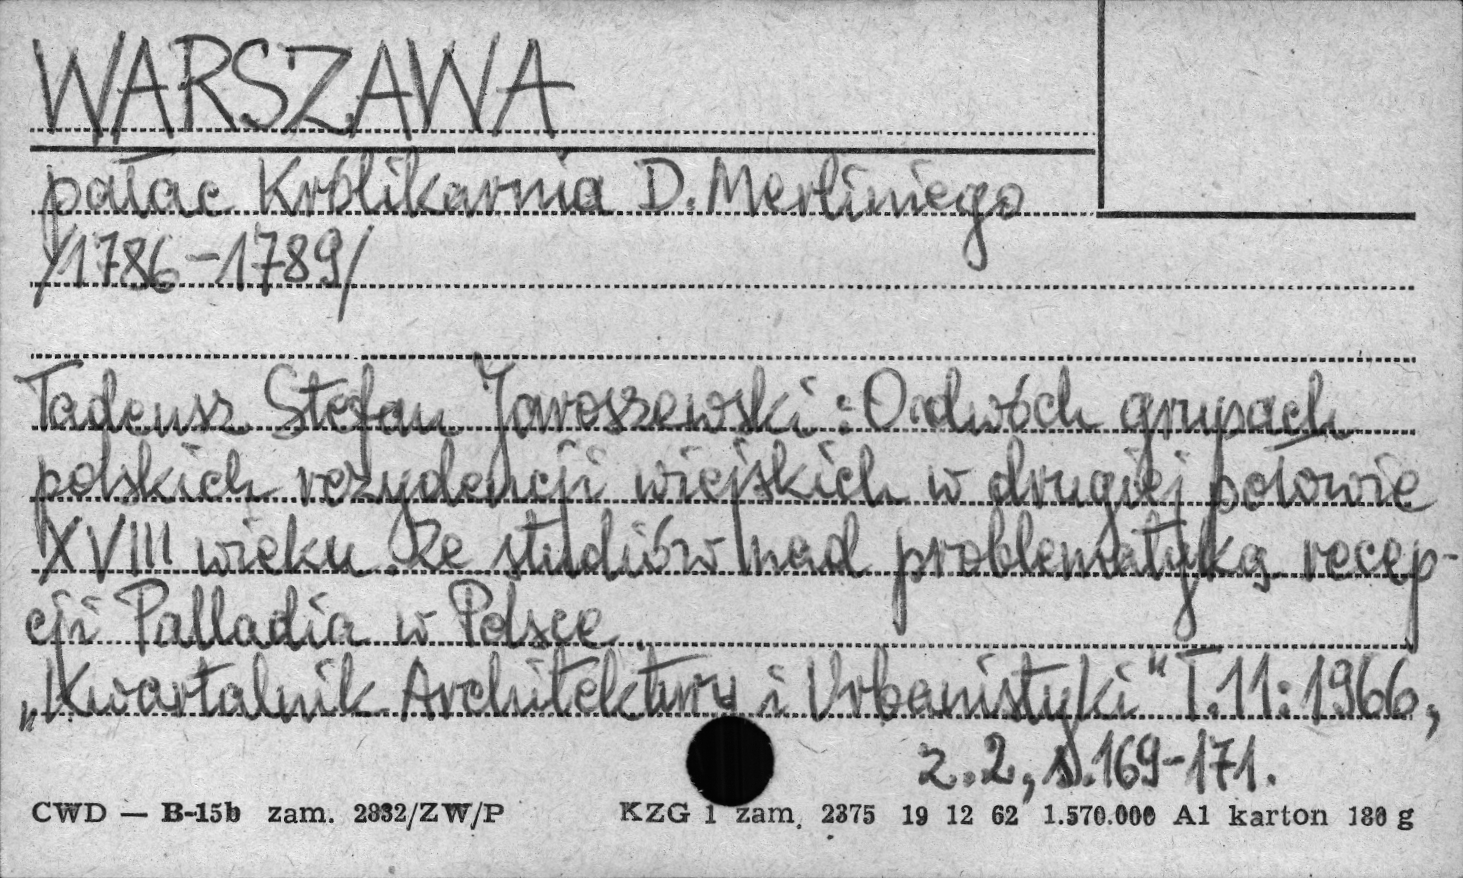 WARSZAWA
pałac Królikarnia D. Merliniego
/1786-1789/
Tadeusz Stefan Jaroszewski: O dwóch grupach
polskich rezydencji wiejskich w drugiej połowie
XVIII wieku. Ze studiów nad problematyką recep-
cji Palladia w Polsce.
„Kwartalnik Architektury i Urbanistyki" T.11:1966,
z.2, s.169-171.
CWD — B-15b zam. 2832/ZW/P KZG 1 zam. 2375 19 12 62 1.570.000 A1 karton 180 g